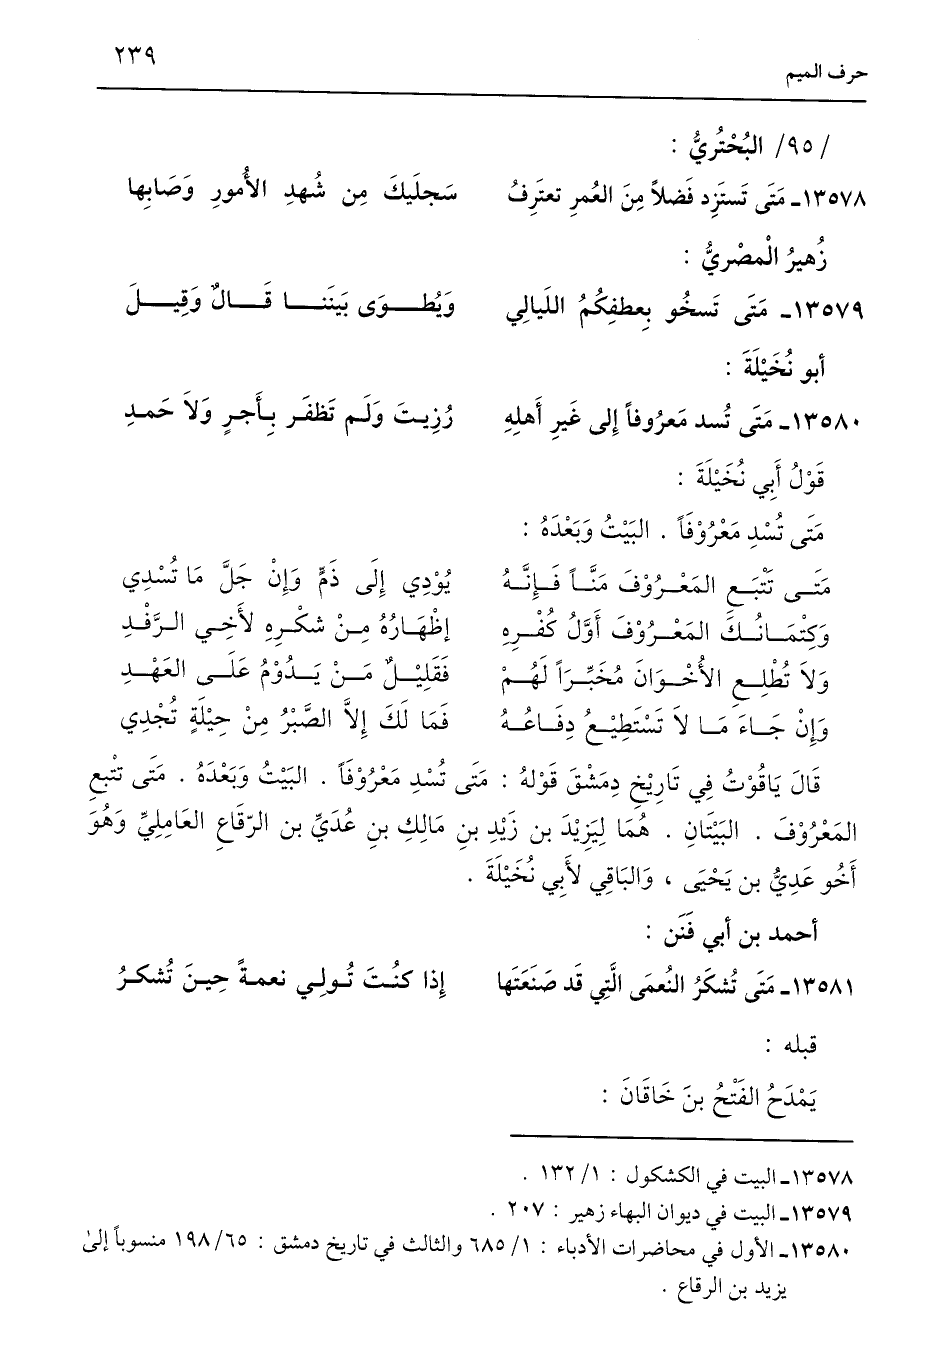 حرف الميم ٢٣٩
/ ٩٥/ البُحْتُريُّ :
١٣٥٧٨ـ مَتَى تَستَزِد فَضلاً مِنَ العُمرِ تعتَرِفُ سَجلَيكَ مِن شُهدِ الأُمورِ وَصَابِها
زُهيرُ الْمصْريُّ :
١٣٥٧٩ـ مَتَى تَسخُو بِعطفِكُمُ اللَيالِي وَيُطوَى بَينَنا قَالٌ وَقِيلَ
أبو نُخَيْلَةَ :
١٣٥٨٠ـ مَتَى تُسد مَعرُوفاً إلى غَيرِ أَهلِهِ رُزِيتَ وَلَم تَظفَر بِأَجرٍ وَلاَ حَمدِ
قَوْلُ أَبِي نُخَيْلَةَ :
مَتَى تُسْدِ مَعْرُوْفَاً . البَيْتُ وَبَعْدَهُ :
مَتَى تَتْبَعِ المَعْرُوْفَ مَنَّاً فَإِنَّهُ يُوْدِي إِلَى ذَمٍّ وَإِنْ جَلَّ مَا تُسْدِي
وَكِتْمَانُكَ المَعْرُوْفَ أَوَّلُ كُفْرِهِ إظْهَارُهُ مِنْ شكْرِهِ لأَخِي الرَّفْدِ
وَلاَ تُطْلِعِ الأُخْوَانَ مُخَبِّرَاً لَهُمْ فَقَلِيْلٌ مَنْ يَدُوْمُ عَلَى العَهْدِ
وَإِنْ جَاءَ مَا لاَ تَسْتَطِيْعُ دِفَاعُهُ فَمَا لَكَ إِلاَّ الصَّبْرُ مِنْ حِيْلَةٍ تُجْدِي
قَالَ يَاقُوْتُ فِي تَارِيْخِ دِمَشْقَ قَوْلهُ : مَتَى تُسْدِ مَعْرُوْفَاً . البَيْتُ وَبَعْدَهُ . مَتَى تتْبعِ
المَعْرُوْفَ . البَيْتَانِ . هُمَا لِيَزِيْدَ بن زَيْدِ بنِ مَالِكِ بنِ عُدَيِّ بن الرّقَاعِ العَامِليِّ وَهُوَ
أَخُو عَدِيُّ بن يَحْيَى ، وَالبَاقِي لأَبِي نُخَيْلَةَ .
أحمد بن أبي فَنَن :
١٣٥٨١ـ مَتَى تُشكَرُ النُعمَى الَّتِي قَد صَنَعَتَها إِذا كنُتَ تُولِي نعمةً حِينَ تُشكرُ
قبله :
يَمْدَحُ الفَتْحُ بنَ خَاقَانَ :
١٣٥٧٨ـ البيت في الكشكول : ١/ ١٣٢ .
١٣٥٧٩ـ البيت في ديوان البهاء زهير : ٢٠٧ .
١٣٥٨٠ـ الأول في محاضرات الأدباء : ١/ ٦٨٥ والثالث في تاريخ دمشق : ٦٥/ ١٩٨ منسوباً إلىٰ
يزيد بن الرقاع .